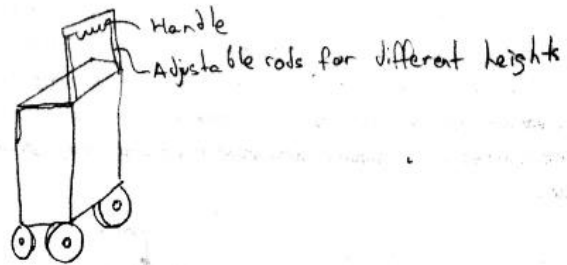 Handle
Adjustable rods for different heights